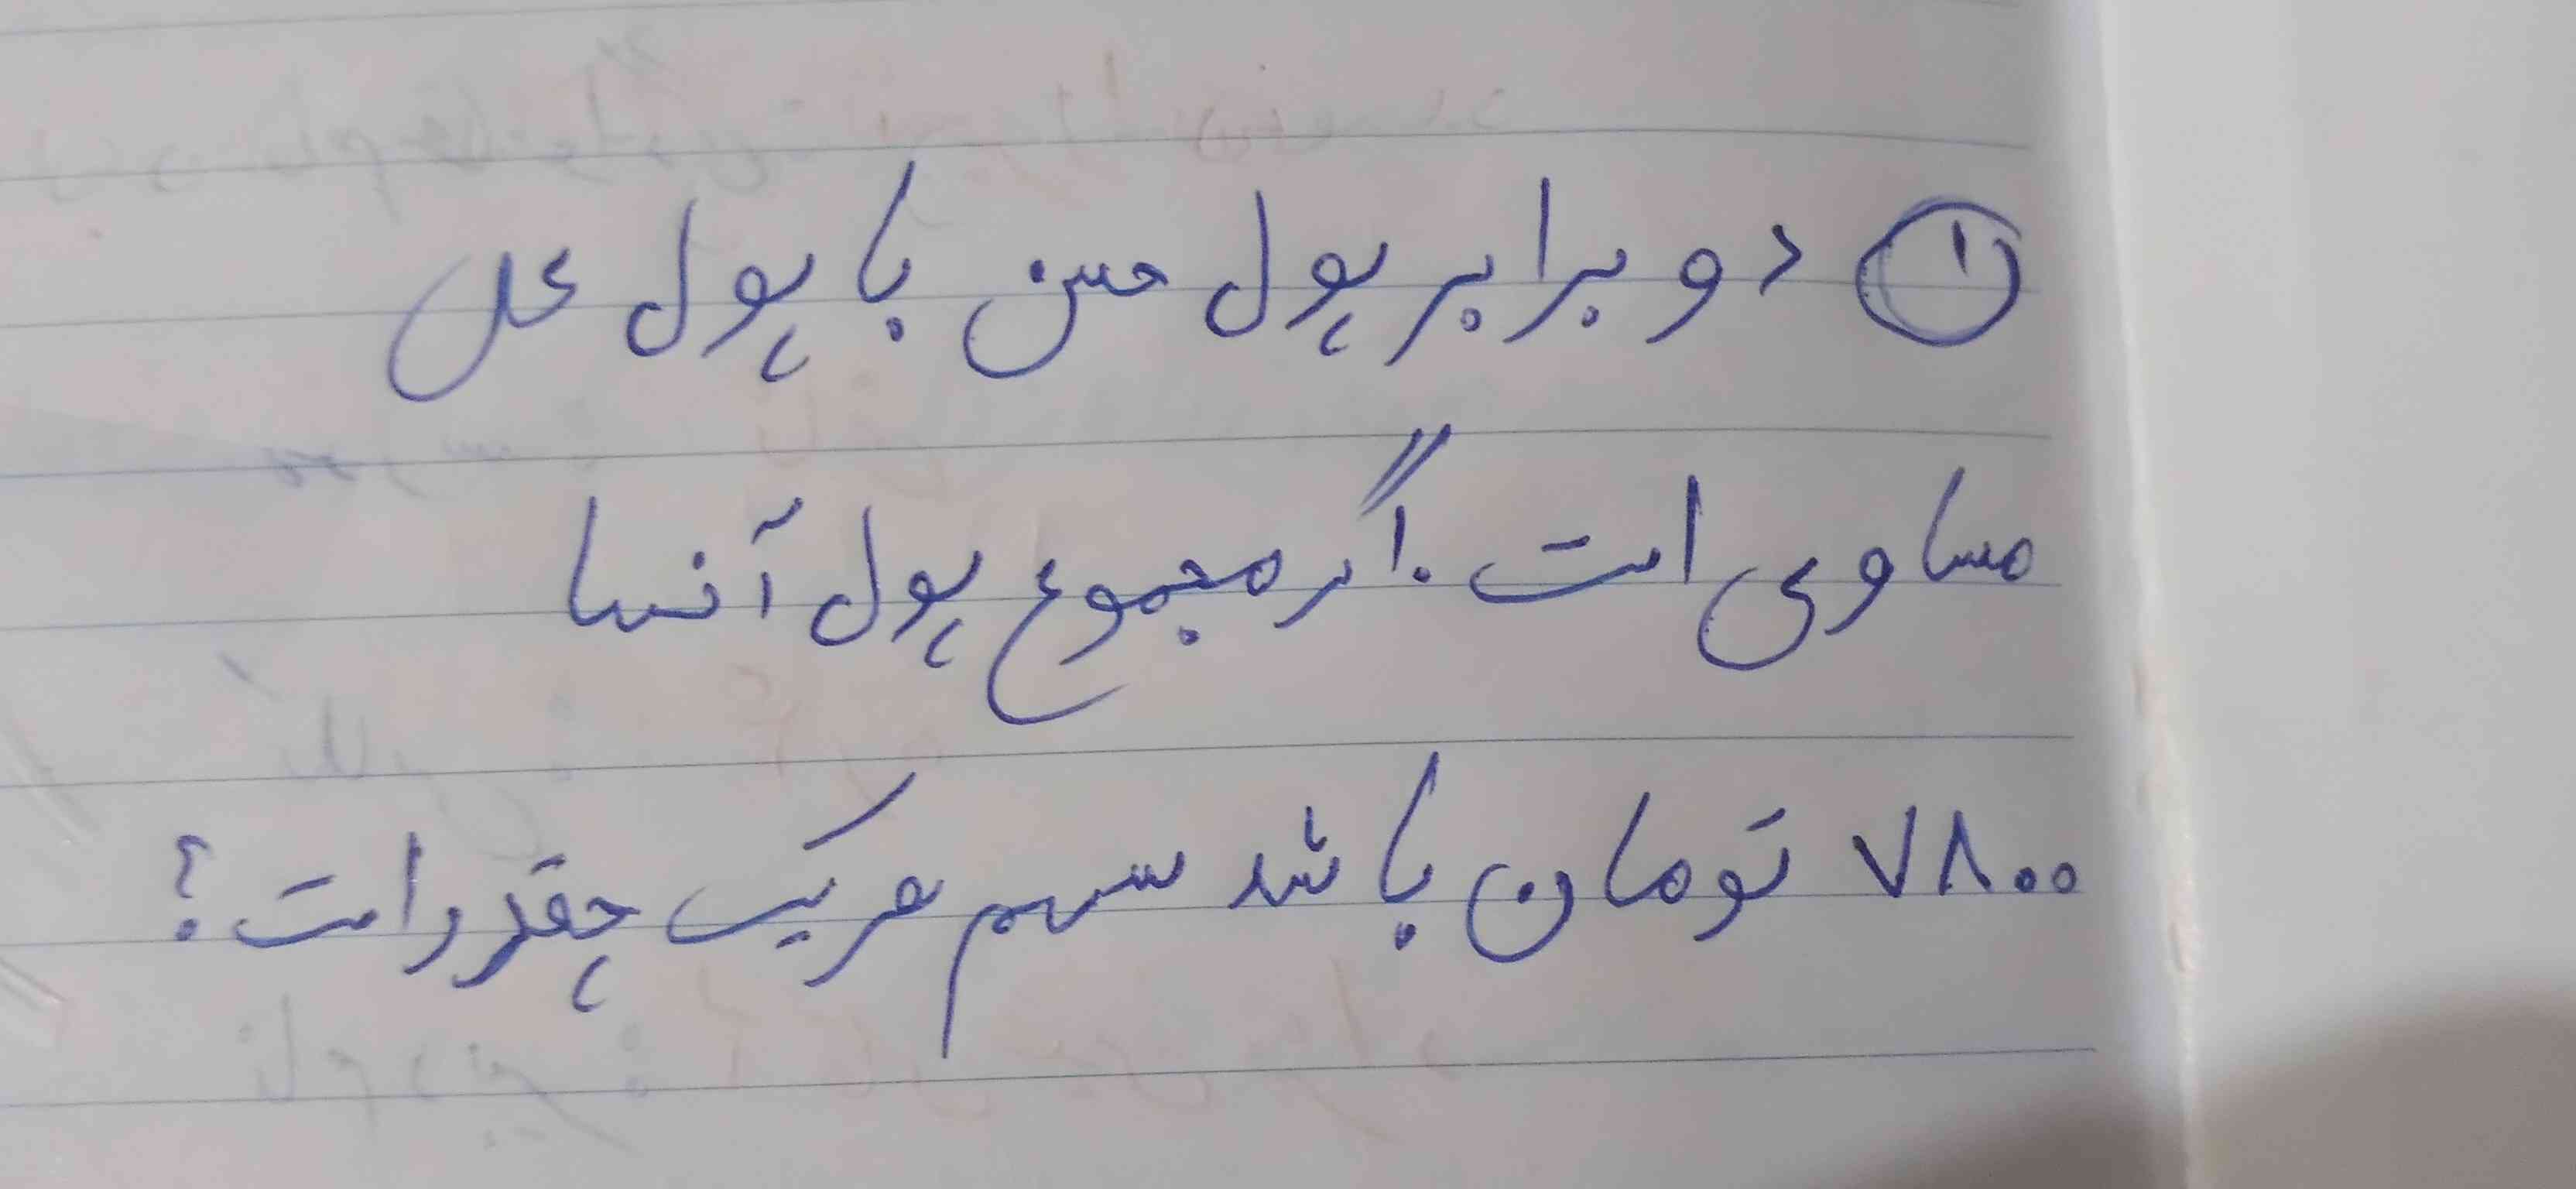 ① دو برابر پول حسن با پول علی
مساوی است. اگر مجموع پول آنها
۷۸۰۰ تومان باشد سهم هریک چقدر است؟